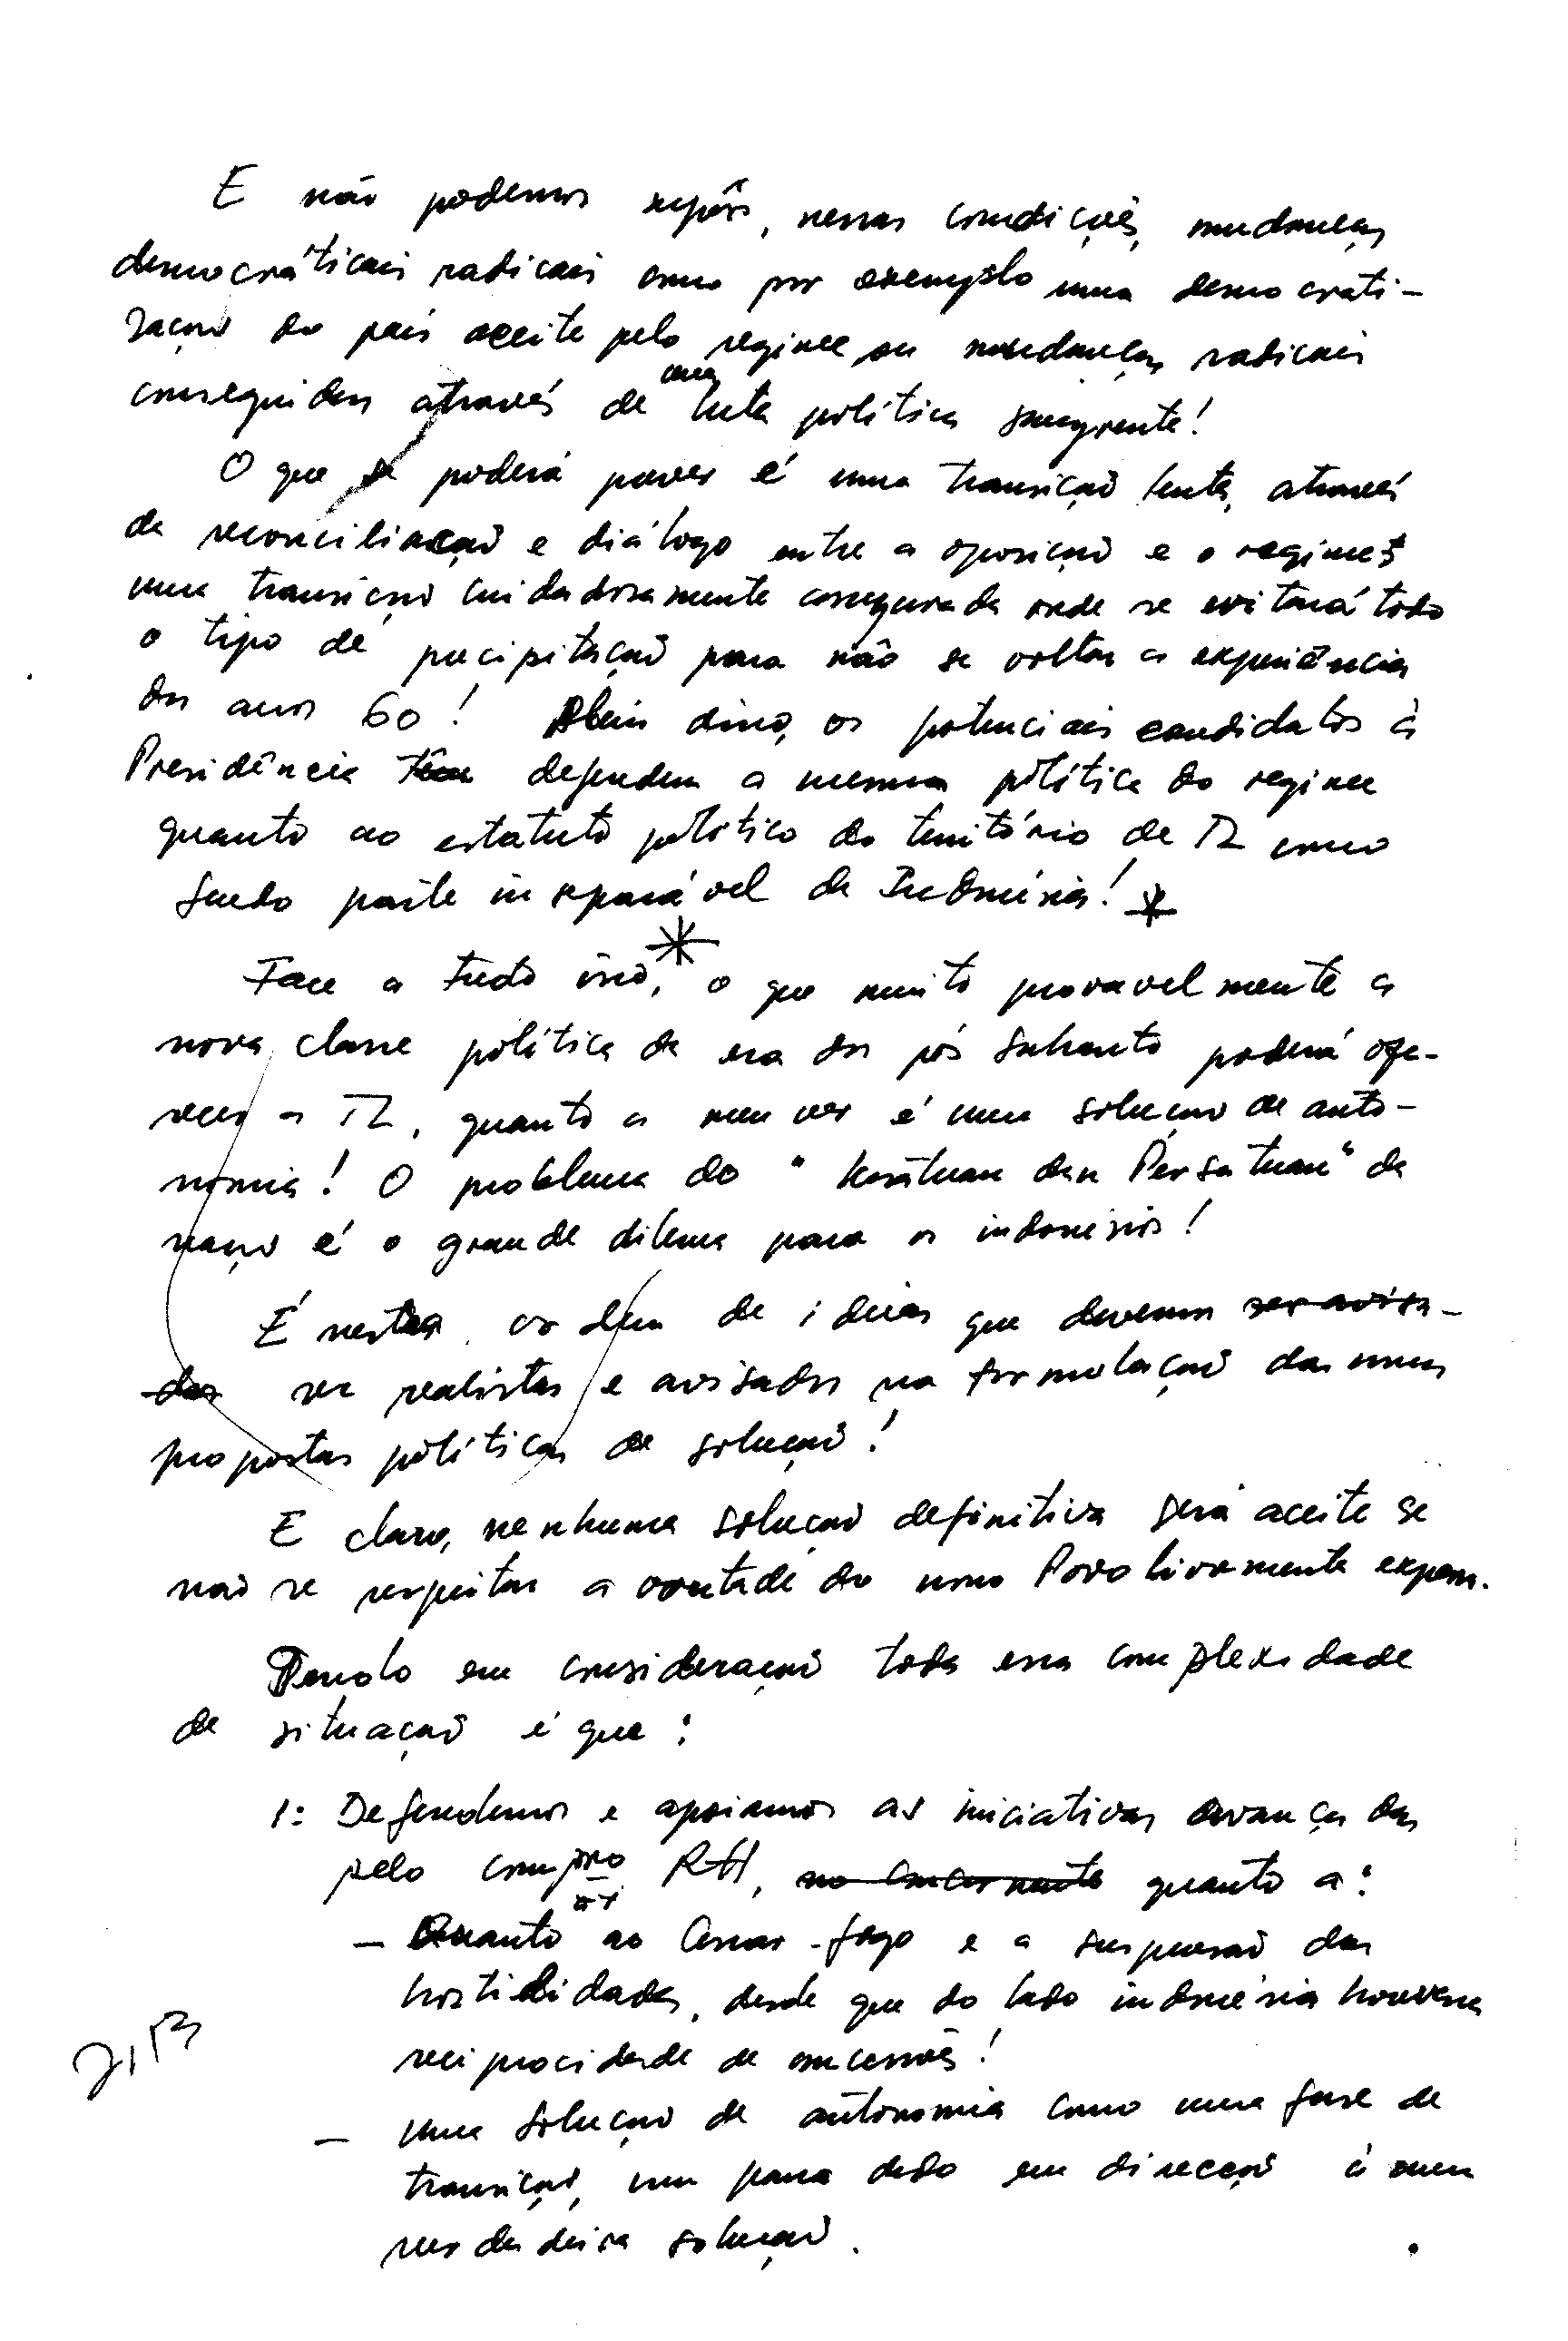 E não podemos supôr, nessas condições, mudanças
democráticas radicais como por exemplo uma democrati-
zação do país aceite pelo regime ou mudanças radicais
conseguidas através de uma luta política sangrenta!
O que se poderá prever é uma transição lenta, através
da reconciliação e diálogo entre a oposição e o regime
uma transição cuidadosamente assegurada onde se evitará todo
o tipo de precipitação para não se voltar a experiência
dos anos 60! Além disso, os potenciais candidatos à
Presidência têm defendem a mesma política do regime
quanto ao estatuto político do território de TL como
sendo parte inseparável da Indonésia! *
Face a tudo isso, * o que muito provavelmente a
nova classe política da era dos pós Suharto poderá ofe-
recer a TL, quanto a meu ver é uma solução de auto-
nomia! O problema do "Kesatuan dan Persatuan" da
nação é o grande dilema para os indonésios!
É nesta ordem de ideias que devemos ser avisa-
dos ser realistas e avisados na formulação das nossas
propostas políticas de solução!
E claro, nenhuma solução definitiva será aceite se
não se respeitar a vontade do nosso Povo livremente expressa.
Tendo em consideração toda essa complexidade
de situação é que:
1: Defendemos e apoiamos as iniciativas avançadas
pelo compro RH, no concernente quanto a:
- Quanto ao Cessar-fogo e a suspensão das
hostilidades, desde que do lado indonésia houvesse
reciprocidade de concessões!
- uma solução de autonomia como uma fase de
transição, um passo dado em direcção à uma
verdadeira solução.